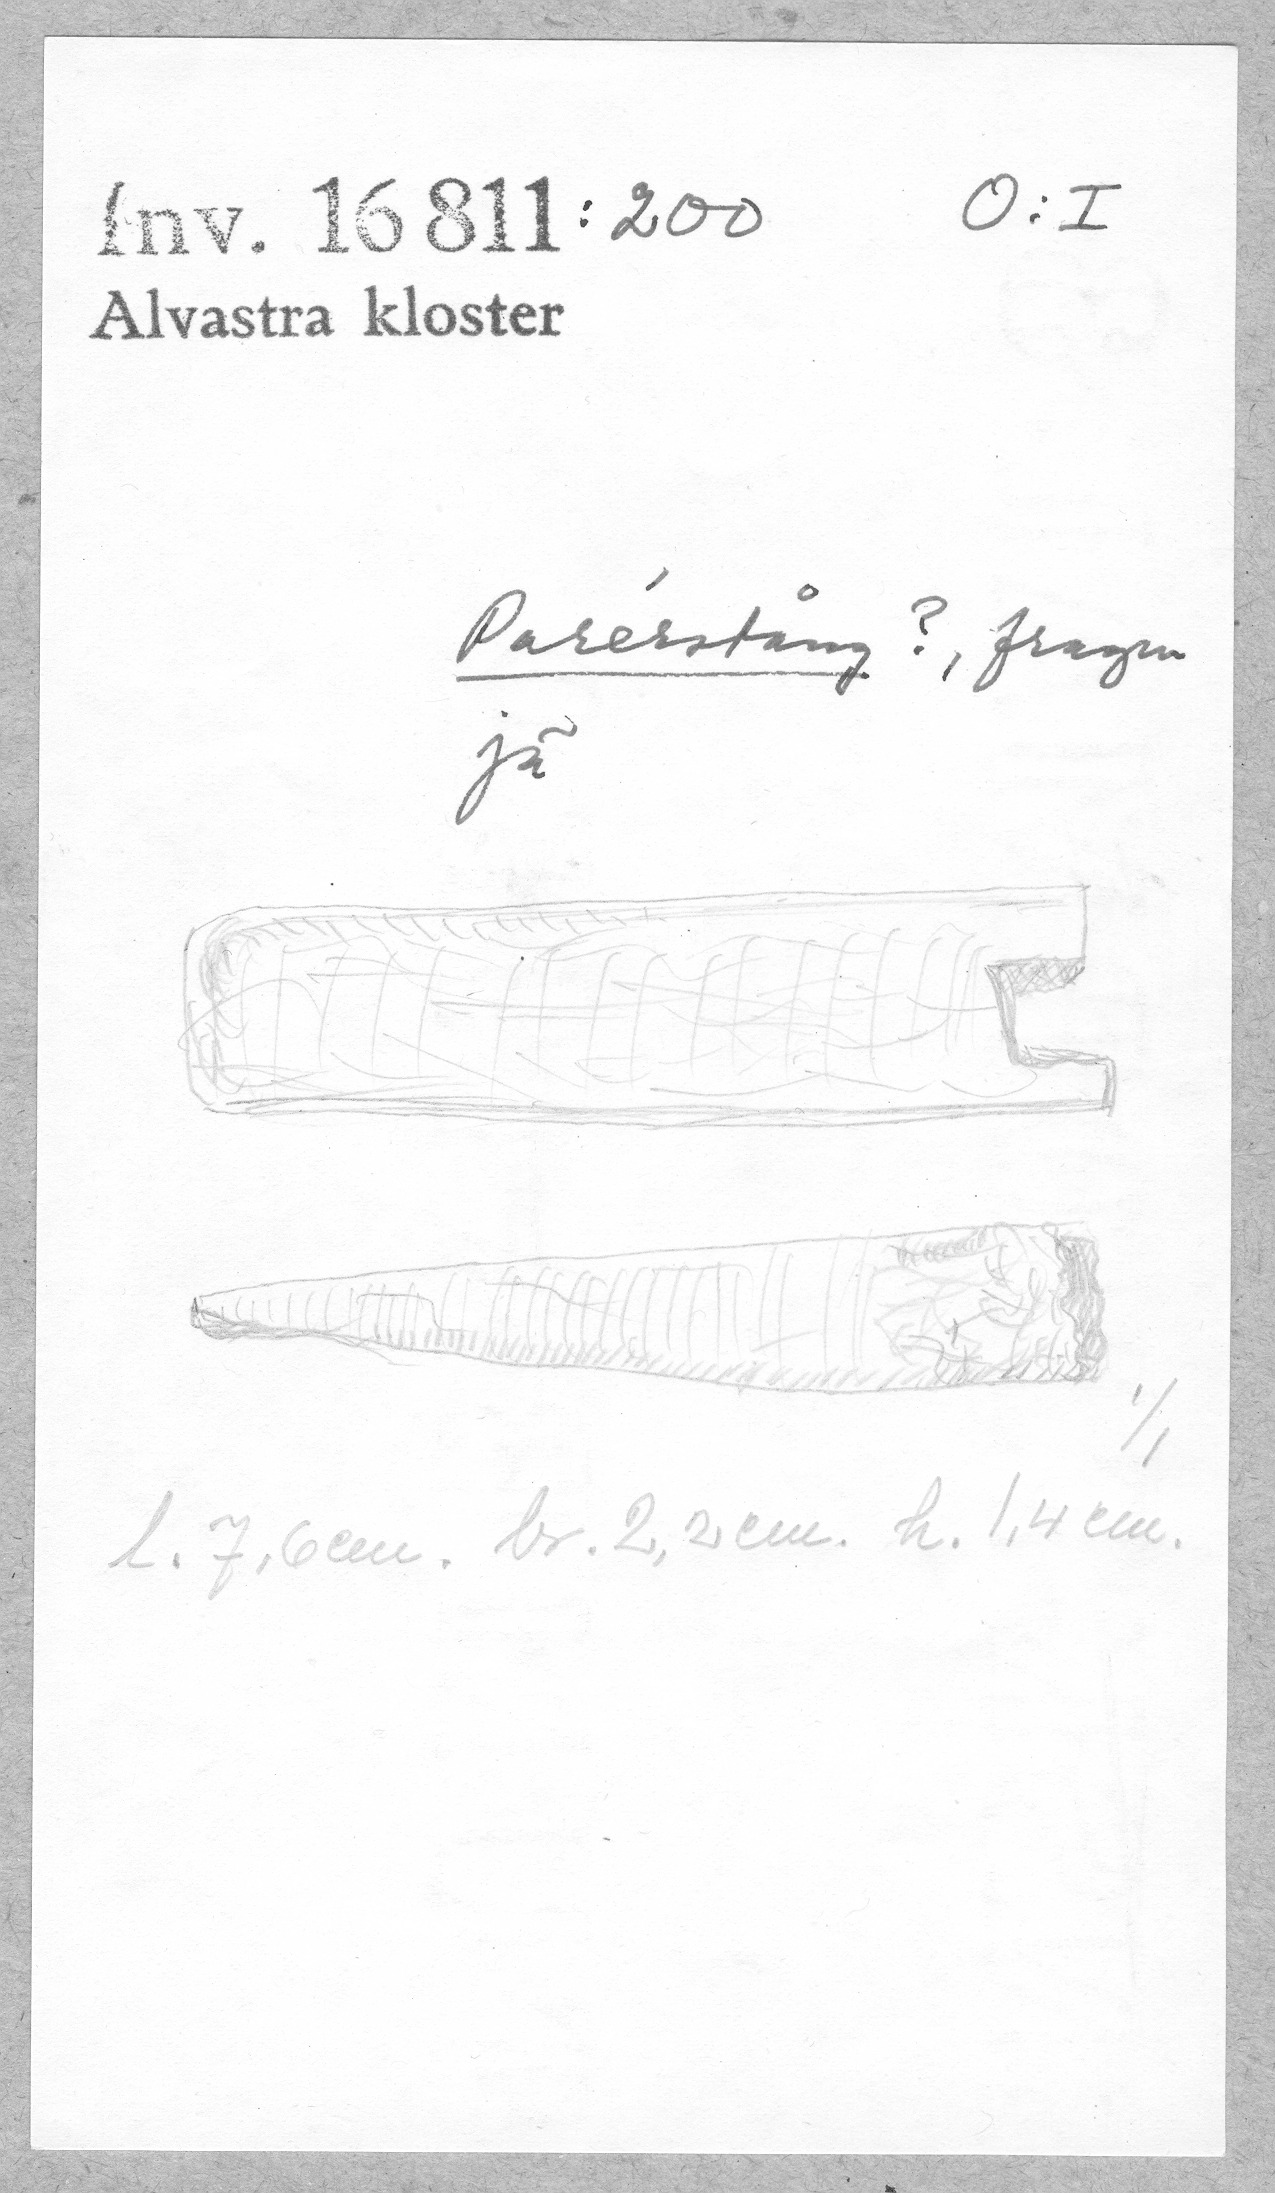 Inv. 16 811:200 O:I
Alvastra kloster
Parérstång ?, fragm
jä
1/1
l. 7,6 cm. br. 2,2 cm. h. 1,4 cm.